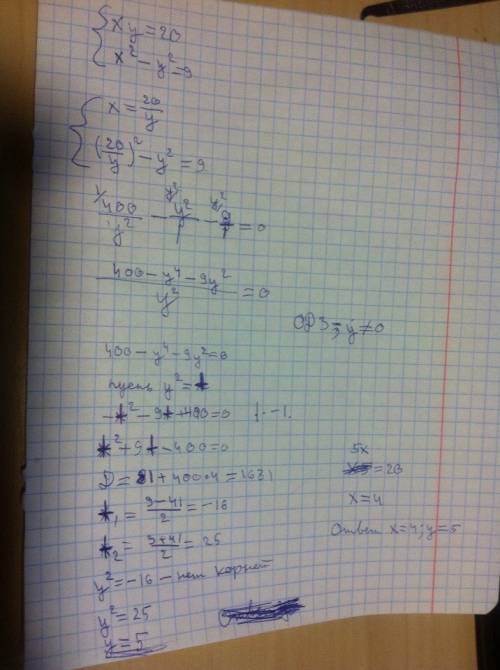 xy=20
x²-y²=9
x=20/y
(20/y)²-y²=9
400/y² - y²/1 - 9/1 =0
(400-y⁴-9y²)/y² =0
ОДЗ: y≠0
400-y⁴-9y²=0
пусть y²=t
-t²-9t+400=0 |·-1.
t²+9t-400=0
D=81+400·4=1631
t₁=(9-41)/2=-16
t₂=(9+41)/2=25
y²=-16-нет корней
y²=25
y=5
5x=20
x=4
Ответ x=4; y=5